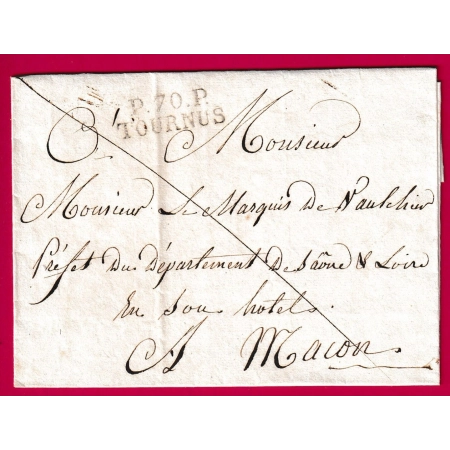 P.70.P.
TOURNUS
Monsieur
Monsieur Le Marquis de Vaulchier
Préfet Du Département De Saône & Loire
En Son hotel.
A Macon